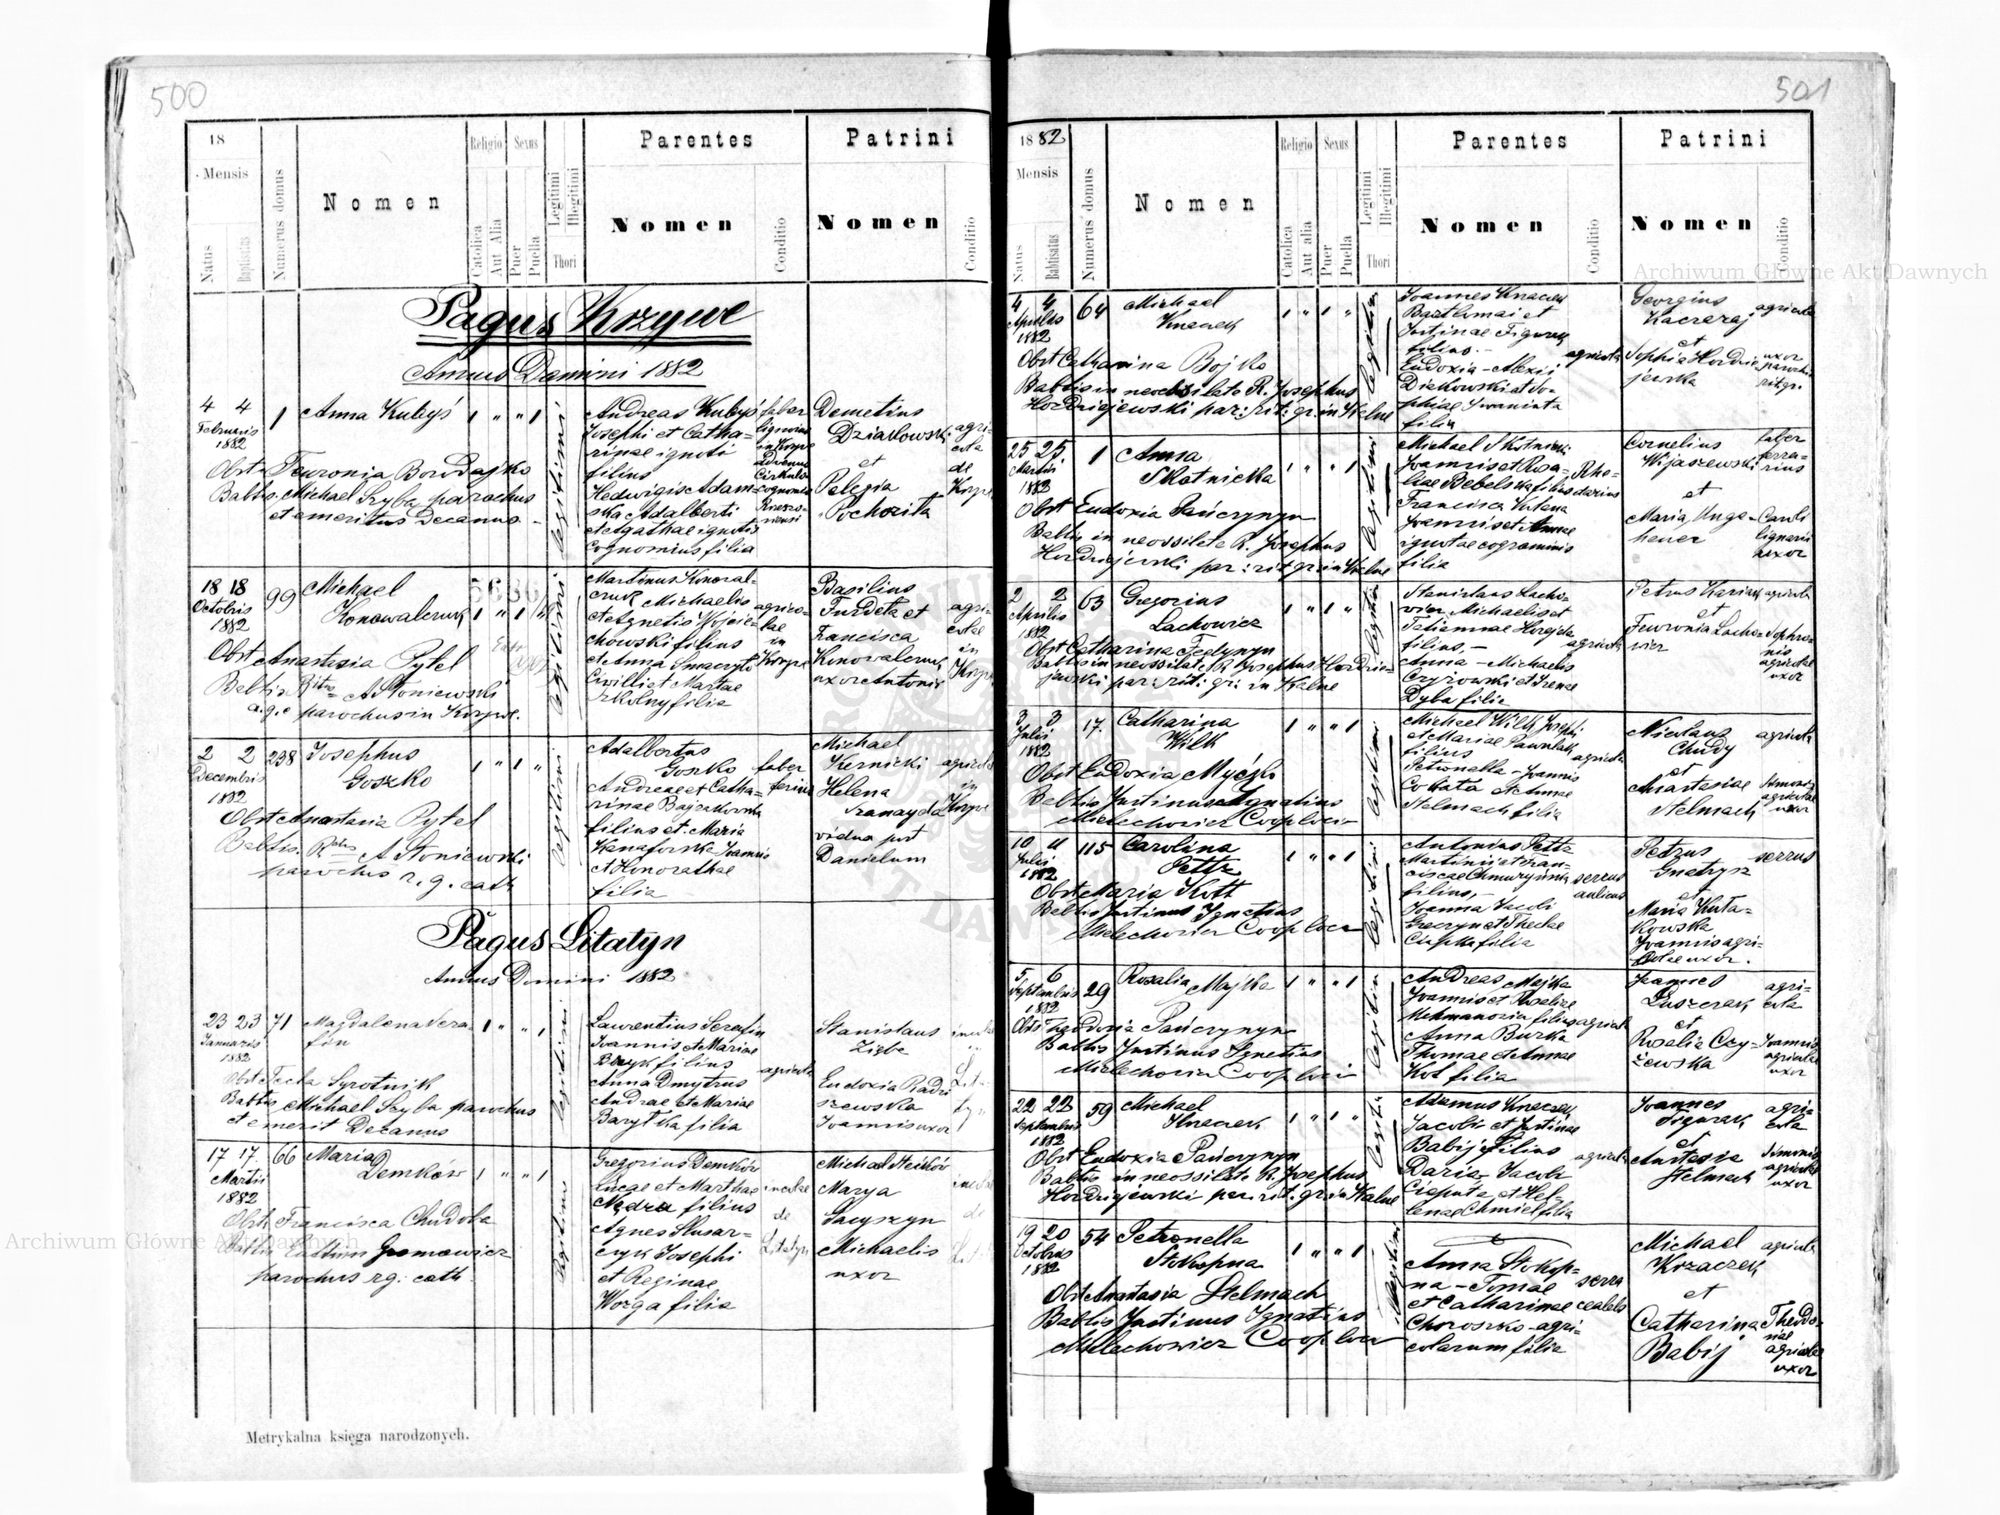 500
18
Mensis
Natus
Baptisatus
Numerus domus
Nomen
Religio
Catolica
Aut Alia
Sexus
Puer
Puella
Legitimi
Illegitimi
Thori
Parentes
Nomen
Conditio
Patrini
Nomen
Conditio
Pagus Krzywe
Annus Domini 1882
4 4
Februaris
1882
1
Anna Kubyś
Obst. Fewronia Bordajko
Babtis. Michael Szyba parochus
et emeritus Decanus
legitimi
Andreas Kubyś
Josephi et Catha-
rinae ignoti
filius
Hedwigis Adam-
ska Adalberti
et Agathae ignotis
cognominis filia
faber
Demetius
Dziadowski
et
Pelegia
Pochozita
agri-
cola
de
18 18
Octobris
1882
99
Michael
Konowalczuk
Obst Anastasia Pytel
Babtis. A Stoniewski
parochus in Krzywe.
legitimi
Martinus Konowal-
czuk Michaelis
et Agnetis Wojcie-
chowski filius
et Anna
et Martae
Szkolny filia
agrico-
lae
in
Krzywe
Basilius
Furdeta et
Francisca
Konowalczuk
uxor Antonii
agri-
colae
in
2 2
Decembris
1882
238
Josephus
Goszko
Obst Anastasia Pytel
Babtis. A Stoniewski
parochus r. g. cath
legitimi
Adalbertus
Goszko
Andreae et Catha-
rinae
filius et Maria
Joannis
et Honorathae
filia
faber
Michael
Kernicki
Helena
Szamayda
vidua post
Danielum
agricola
in
Pagus Litatyn
Annus Domini 1882
23 23
Januaris
1882
71
Magdalena Sera-
fin
Obst Tecla Syrotnik
Babtis Michael Szyba parochus
et emerit Decanus
legitimi
Laurentius Serafin
Joannis et Mariae
filius
Anna Dmytrus
Andrae et Mariae
Barytka filia
agricola
Stanislaus
Zięba
Eudoxia Radzi
szewska
Joannis uxor
17 17
Martii
1882
66
Maria
Demków
Obst Francisca Chudoba
Gromowicz
parochus r.g. cath
Gregorius Demków
Lucae et Marthae
Nędza filius
Agnes Slusar-
czyk Josephi
et Reginae
Wozga filia
incolae
de
Litatyn
Michael
Marya
Jacyszyn
Michaelis
uxor
Metrykalna księga narodzonych.
501
1882
Mensis
Natus
Babtisatus
Numerus domus
Nomen
Religio
Catolica
Aut alia
Sexus
Puer
Puella
Legitimi
Illegitimi
Thori
Parentes
Nomen
Conditio
Patrini
Nomen
Conditio
4 4
Aprilis
1882
64
Michael
Kneczek
Obst Catharina Bojko
Babtis in necessitate R. Josephus
Hordziejewski par: rit: gr: in Kalne
Joannes Kneczek
Bartlomai et
Justinae Figurek
filius.-
Eudoxia - Alexii
Diakowski et So-
phiae Iwanicka
filia
agricola
Georgius
Kaczaraj
et
Sophia Hordzie
jewska
agricola
uxor
parochi
rit gr.
25 25
Martii
1882
1
Anna
Skotnicka
Obst Eudoxia Pańczynyn
Babtis in necessitate R. Josephus
Hordziejewski par: rit gr in Kalne
legitimi
Michael Skotnicki
Joannis et Rosa-
liae Bebelska filius
Francisca Kutena
Joannis et Annae
ignotae cognominis
filia
Cornelius
Wijaszewski
et
Maria Unge-
heuer
faber
ferra-
rius
Caroli
lignarii
uxor
2 2
Aprilis
1882
63
Gregorius
Lachowicz
Obst Catharina Fedynyn
Babtis in necessitate R. Josephus Hordzie-
jewski par: rit: gr: in Kalne
Stanislaus Lacho-
wicz Michaelis et
Tatiannae
filius,-
Anna - Michaelis
Czyzowski et Irenae
Dyba filia
agricola
Petrus
et
Fewronia Lacho-
wicz
agricola
Sophro-
nis
agricolae
uxor
3 3
Julii
1882
17.
Catharina
Wilk
Obst Eudoxia Myczko
Babtis Justinus Ignatius
Mielechowicz Coop loci
Michael Wilk Josephi
et Mariae Pawulak
filius
Petronella - Joannis
et Annae
Stelmach filia
agricola
Nicolaus
Chudy
et
Anastasiae
Stelmach
agricola
Simonis
agricolae
uxor
10 11
Julii
1882
115
Carolina
Pettz
Obst Maria Kott
Babtis Justinus Ignatius
Mielechowicz Coop loci
Antonius Pettz
Martini et Fran-
ciscae
filius,-
Joanna Jacobi
et Theclae
filia
servus
aulicus
Petrus
et
Maria Kuta-
kowska
Joannis agri-
colae uxor.
servus
5 6
Septembris
1882
29
Rosalia Majka
Obst Teodosia Pańczynyn
Babtis Justinus Ignatius
Mielechowicz Coop loci
Andreas Majka
Joannis et Rosaliae
filius
Anna Burka
Thomae et Annae
Kot filia
agricola
Joannes
Luszczak
et
Rosalia Czy-
żewska
agri-
cola
Joannis
agricolae
uxor
22 22
Septembris
1882
59
Michael
Kneczek
Obst Eudoxia Pańczynyn
Babtis in necessitate R. Josephus
Hordziejewski par. rit. gr. in Kalne
Adamus Kneczek
Jacobi et Justinae
Babij filius
Daria - Jacobi
Cieputa et Hel-
lenae Chmiel filia
agricola
Joannes
Figurek
et
Anastasia
Stelmach
agri-
cola
Simonis
agricolae
uxor
19 20
Octobris
1882
54
Petronella
Stokopna
Obst Anastasia Stelmach
Babtis Justinus Ignatius
Mielechowicz Coop loci
illegitimi
Anna Stokop-
na - Tomae
et Catharinae
Choroszko - agri-
colarum filia
serva
Michael
Kozaczek
et
Catharina
Babij
agricola
Theodo-
riae
agricolae
uxor
Archiwum Główne Akt Dawnych
Archiwum Główne Akt Dawnych